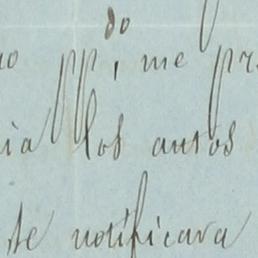 do
no pp, me pr
ia los autos
te notificara